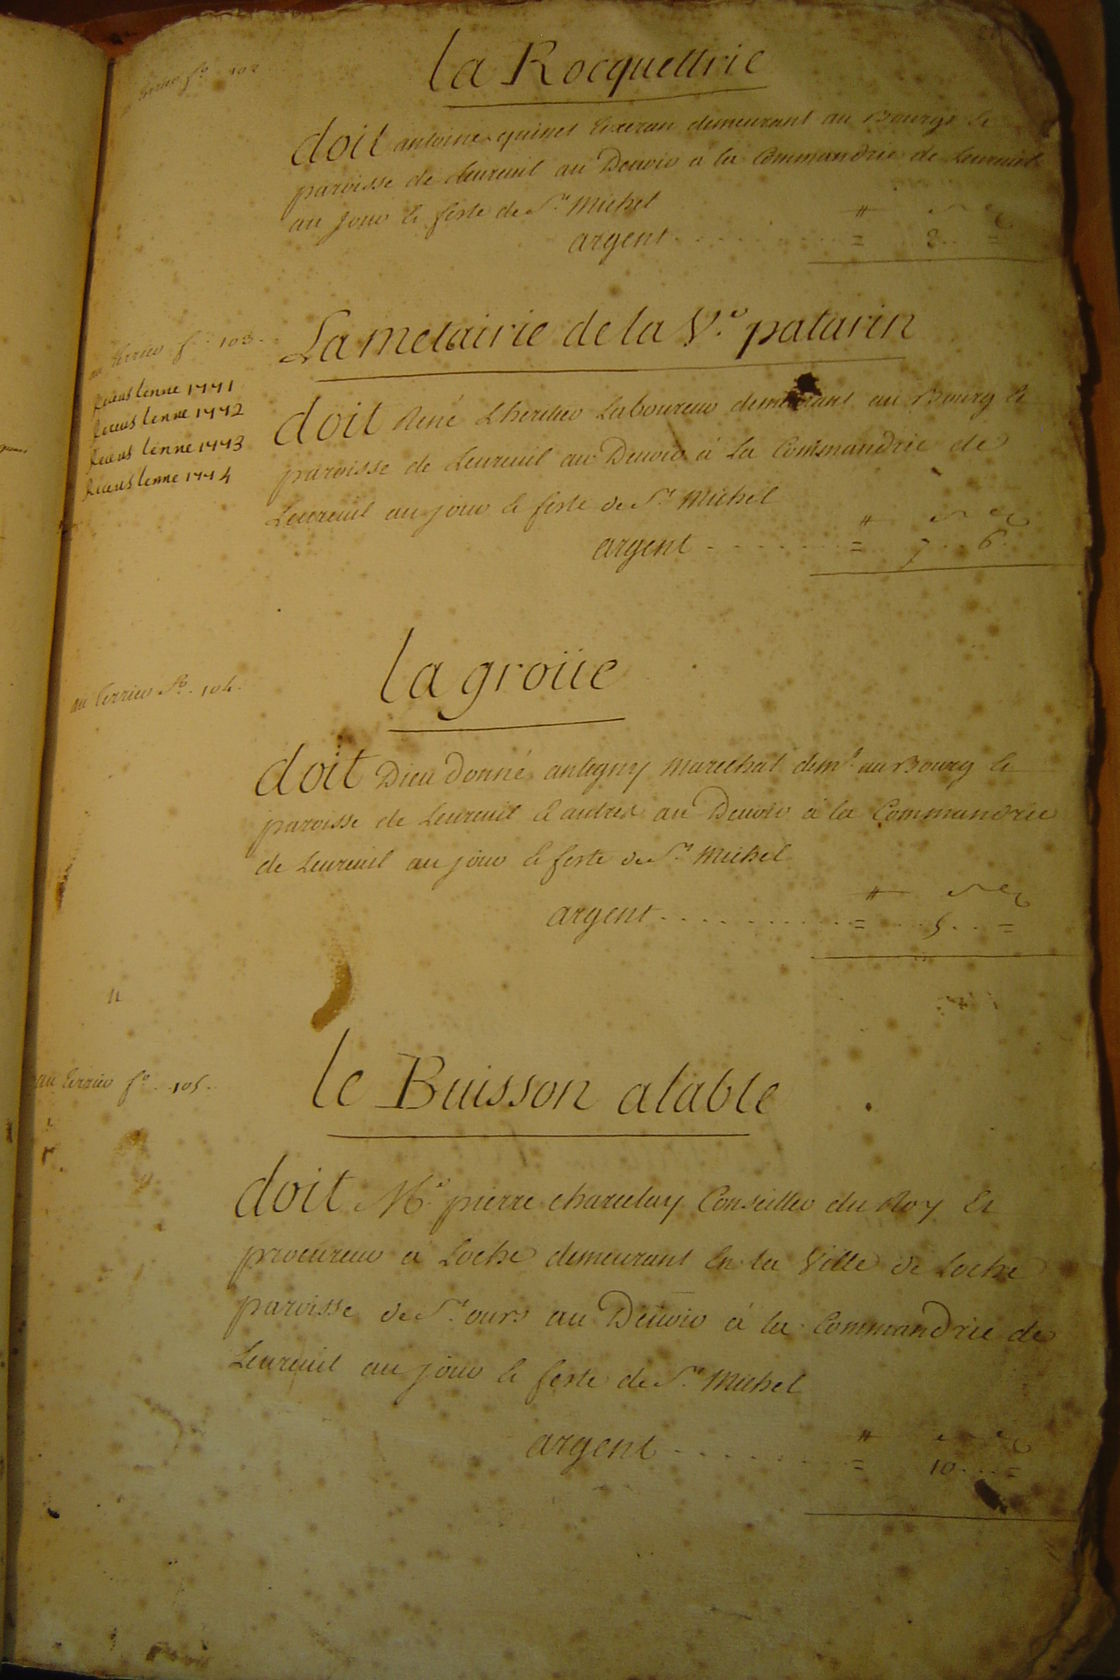 terrier fo 102
la Rocquettrie
doit antoine quinet demeurant au Bourg &
paroisse de Leureuil au Devoir a la Commandrie de Leureuil
au jour & feste de St Michel
argent . . . . . = 2 . . =
au terrier fo 103.
La metairie de la Ve. patarin
Receus lenne 1771
Receus lenne 1772
Receus lenne 1773
Receus lenne 1774
doit René Lheritier Laboureur demeurant au Bourg &
paroisse de Leureuil au Devoir a La Commandrie de
Leureuil au jour & feste de St Michel
argent . . . . . = 7 . . 6
au terrier fo. 104.
la groüe
doit Dieu donné antigny Marechal demt. au Bourg &
paroisse de Leureuil & autres au Devoir a la Commandrie
de Leureuil au jour & feste de St Michel
argent . . . . . = 5 . . =
au terrier fo. 105.
le Buisson alable
doit Me. pierre charcelay Conseiller du Roy Et
procureur a Loche demeurant En la Ville de Loche
paroisse de St. ours au Devoir a la Commandrie de
Leureuil au jour & feste de St Michel
argent . . . . . = 10 . . =